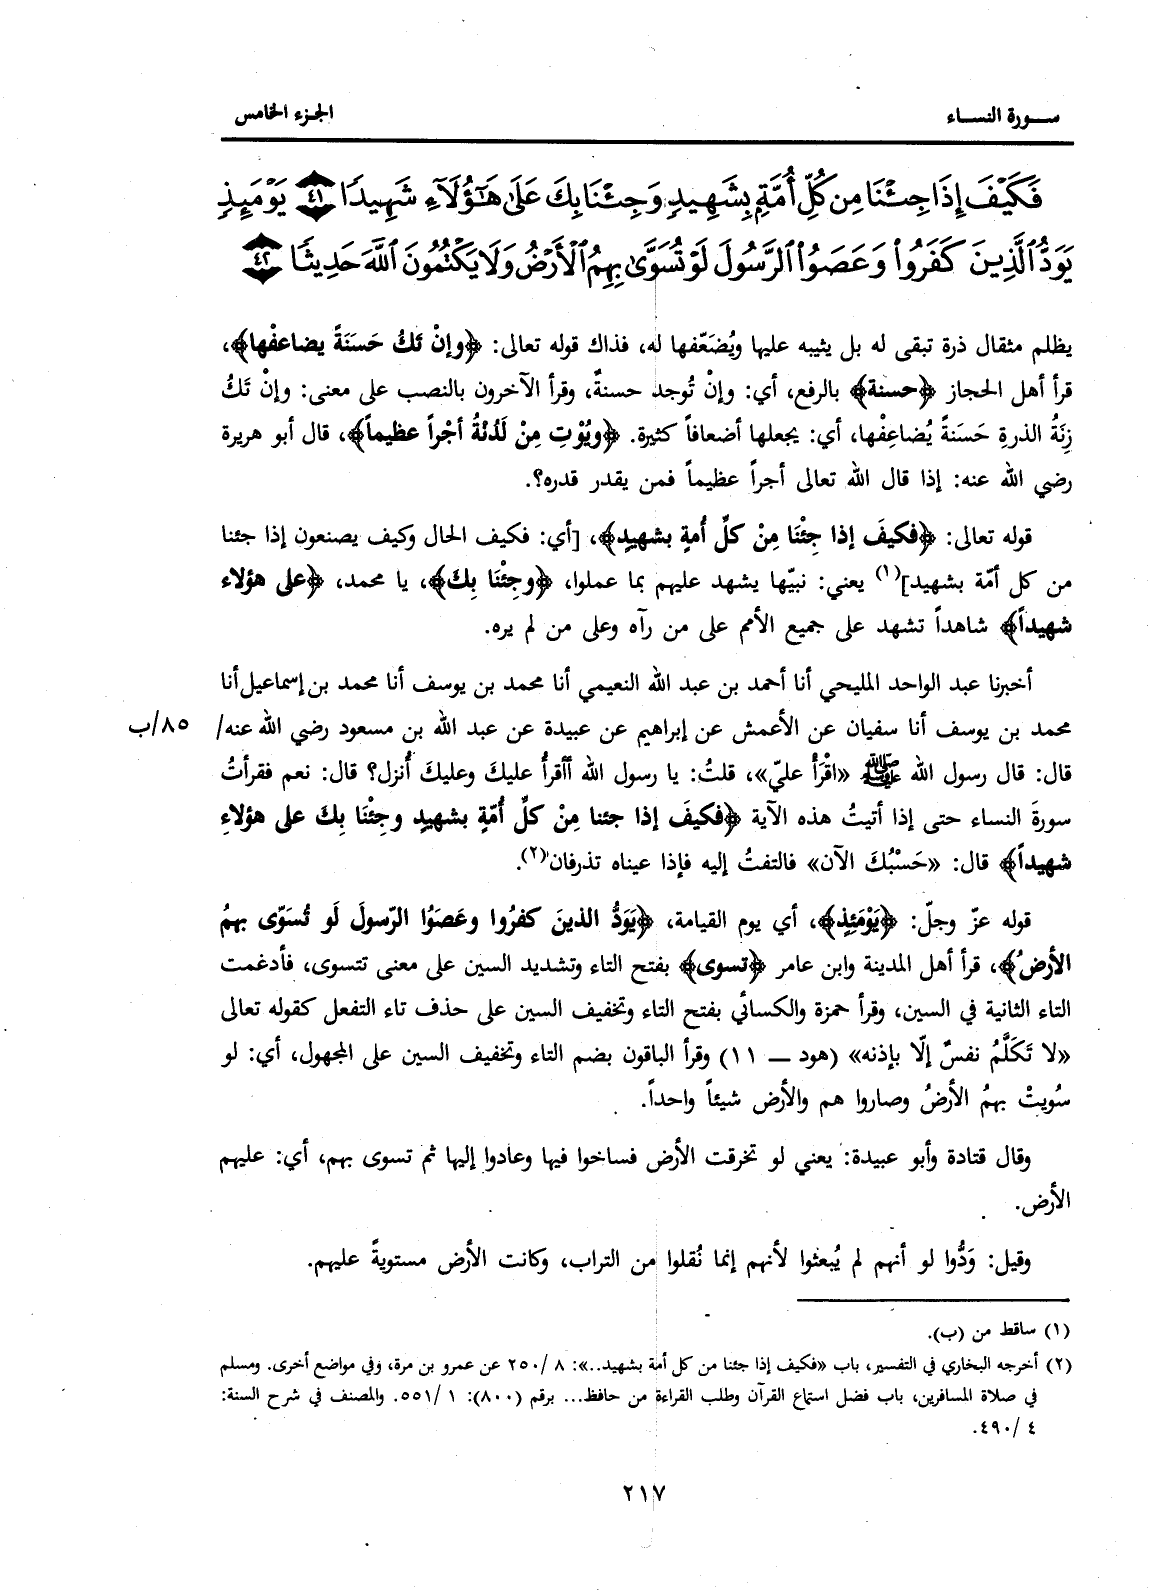 سورة النساء
الجزء الخامس
فَكَيْفَ إِذَا جِئْنَا مِن كُلِّ أُمَّةٍ بِشَهِيدٍ وَجِئْنَا بِكَ عَلَىٰ هَٰٓؤُلَآءِ شَهِيدًا ٤١ يَوْمَئِذٍ
يَوَدُّ ٱلَّذِينَ كَفَرُوا۟ وَعَصَوُا۟ ٱلرَّسُولَ لَوْ تُسَوَّىٰ بِهِمُ ٱلْأَرْضُ وَلَا يَكْتُمُونَ ٱللَّهَ حَدِيثًا ٤٢
يظلم مثقال ذرة تبقى له بل يثيبه عليها ويُضَعّفها له، فذاك قوله تعالى: ﴿وإنْ تَكُ حَسَنَةً يضاعفْها﴾،
قرأ أهل الحجاز ﴿حسنة﴾ بالرفع، أي: وإنْ تُوجد حسنةٌ، وقرأ الآخرون بالنصب على معنى: وإنْ تَكُ
زِنَةُ الذرةِ حَسَنةً يُضاعِفْها، أي: يجعلها أضعافاً كثيرة. ﴿ويُؤْتِ مِنْ لَدُنْهُ أجْراً عظيماً﴾، قال أبو هريرة
رضي الله عنه: إذا قال الله تعالى أجراً عظيماً فمن يقدر قدره؟.
قوله تعالى: ﴿فكيفَ إذا جِئْنَا مِنْ كلِّ أُمةٍ بشهيدٍ﴾، [أي: فكيف الحال وكيف يصنعون إذا جئنا
من كل أمّة بشهيد](١) يعني: نبيّها يشهد عليهم بما عملوا، ﴿وجِئْنَا بِكَ﴾، يا محمد، ﴿على هؤلاء
شهيداً﴾ شاهداً تشهد على جميع الأمم على من رآه وعلى من لم يره.
أخبرنا عبد الواحد المليحي أنا أحمد بن عبد الله النعيمي أنا محمد بن يوسف أنا محمد بن إسماعيل أنا
محمد بن يوسف أنا سفيان عن الأعمش عن إبراهيم عن عبيدة عن عبد الله بن مسعود رضي الله عنه/ ٨٥/ب
قال: قال رسول الله ﷺ «اقْرَأْ عليّ»، قلتُ: يا رسول الله أأقرأُ عليكَ وعليكَ أُنزل؟ قال: نعم فقرأتُ
سورةَ النساء حتى إذا أتيتُ هذه الآية ﴿فكيفَ إذا جئنا مِنْ كلِّ أُمّةٍ بشهيدٍ وجِئْنَا بِكَ على هؤلاءِ
شهيداً﴾ قال: «حَسْبُكَ الآن» فالتفتُ إليه فإذا عيناه تذرفان(٢).
قوله عزّ وجلّ: ﴿يَوْمَئِذٍ﴾، أي يوم القيامة، ﴿يَوَدُّ الذينَ كفرُوا وعَصَوُا الرّسولَ لَو تُسَوّى بهمُ
الأرضُ﴾، قرأ أهل المدينة وابن عامر ﴿تسوى﴾ بفتح التاء وتشديد السين على معنى تتسوى، فأدغمت
التاء الثانية في السين، وقرأ حمزة والكسائي بفتح التاء وتخفيف السين على حذف تاء التفعل كقوله تعالى
«لا تَكَلَّمُ نفسٌ إلّا بإذنه» (هود ــ ١١) وقرأ الباقون بضم التاء وتخفيف السين على المجهول، أي: لو
سُويتْ بهمُ الأرضُ وصاروا هم والأرض شيئاً واحداً.
وقال قتادة وأبو عبيدة: يعني لو تخرقت الأرض فساخوا فيها وعادوا إليها ثم تسوى بهم، أي: عليهم
الأرض.
وقيل: وَدُّوا لو أنهم لم يُبعثوا لأنهم إنما نُقلوا من التراب، وكانت الأرض مستويةً عليهم.
(١) ساقط من (ب).
(٢) أخرجه البخاري في التفسير، باب «فكيف إذا جئنا من كل أمة بشهيد..»: ٨ /٢٥٠ عن عمرو بن مرة، وفي مواضع أخرى. ومسلم
في صلاة المسافرين، باب فضل استماع القرآن وطلب القراءة من حافظ... برقم (٨٠٠): ١ /٥٥١. والمصنف في شرح السنة:
٤ /٤٩٠.
٢١٧